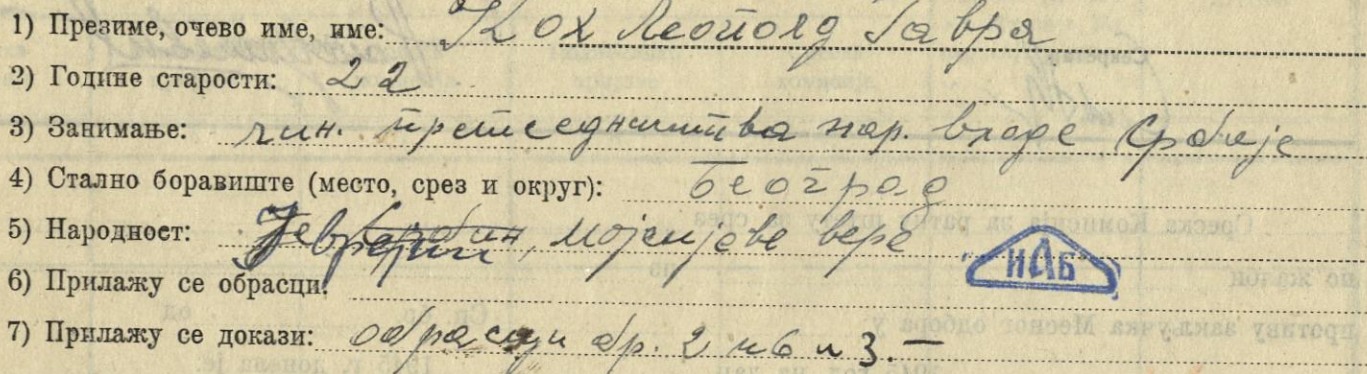 1) Презиме, очево име, име: Кох Леополд Гавра
2) Године старости: 22
3) Занимање: чин. претседништва нар. владе Србије
4) Стално боравиште (место, срез и округ): Београд
5) Народност: Јеврејин, мојсијеве вере
ИАБ
6) Прилажу се обрасци:
7) Прилажу се докази: обрасци бр. 2 и 6 и 3.—